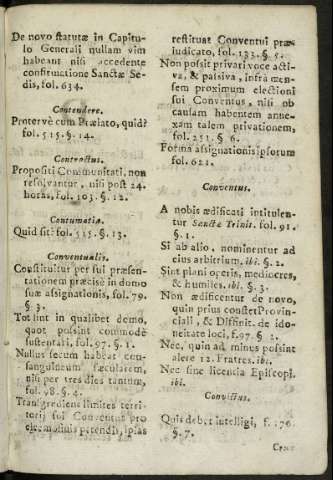 De novo statutæ in Capitu-
lo Generali nullam vim
habeant nisi accedente
constructione Sanctæ Se-
dis, fol. 634.
Contendere.
Protervè cum Prælato, quid?
fol. 515. §. 14.
Contractus.
Propositi Communitati, non
resolvantur, nisi post 24.
horas, fol. 103. §. 12.
Contumatia.
Quid sit? fol. 515. §. 13.
Conventualis.
Constituitur per sui præsen-
tationem præcisè in domo
suæ assignationis, fol. 79.
§. 3.
Tot sint in qualibet domo,
quot possint commodè
sustentari, fol. 97. §. 1.
Nullus secum habeat con-
sanguineum sæcularem,
nisi per tres dies tantum,
fol. 98. §. 4.
Transgredient limites terri-
torij sui Conventus pro
eleemosinis petendis, ipsas
restituat Conventui præ-
iudicato, fol. 133. §. 5.
Non possit privari voce acti-
va, & passiva, infra men-
sem proximum electioni
sui Conventus, nisi ob
causam habentem anne-
xam talem privationem,
fol. 251. §. 6.
Forma assignationis ipsorum
fol. 621.
Conventus.
A nobis ædificati intitulen-
tur Sanctæ Trinit. fol. 91.
§. 1.
Si ab alio, nominentur ad
eius arbitrium, ibi. §. 2.
Sint plani operis, mediocres,
& humiles, ibi. §. 3.
Non ædificentur de novo,
quin prius constet Provin-
ciali, & Diffinit. de ido-
neitate loci, f. 97. §. 2.
Nec, quin ad minus possint
alere 12. Fratres. ibi.
Nec sine licencia Episcopi.
ibi.
Convictus.
Quis debet intelligi, f. 176.
§. 7.